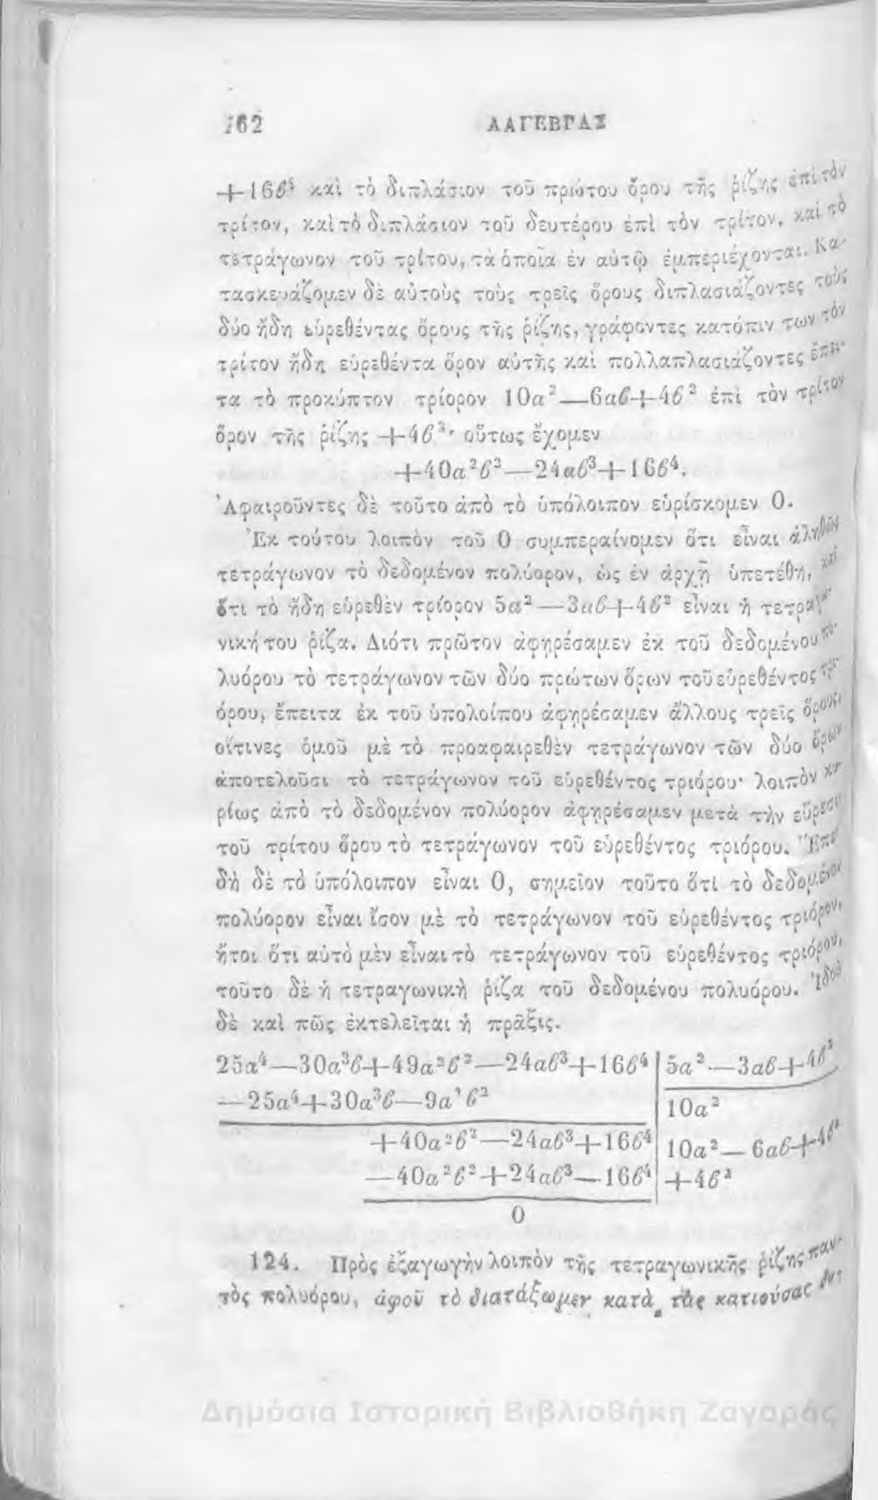 162 ΑΛΓΕΒΡΑΣ
+16β⁴ καὶ τὸ διπλάσιον τοῦ πρώτου ὅρου τῆς ῥίζης ἐπὶ τὸν
τρίτον, καὶ τὸ διπλάσιον τοῦ δευτέρου ἐπὶ τὸν τρίτον, καὶ τὸ
τετράγωνον τοῦ τρίτου, τὰ ὁποῖα ἐν αὐτῷ ἐμπεριέχονται. Κα-
τασκευάζομεν δὲ αὐτοὺς τοὺς τρεῖς ὅρους διπλασιάζοντες τοὺς
δύο ἤδη εὑρεθέντας ὅρους τῆς ῥίζης, γράφοντες κατόπιν των τὸν
τρίτον ἤδη εὑρεθέντα ὅρον αὐτῆς καὶ πολλαπλασιάζοντες ἔπει-
τα τὸ προκύπτον τρίορον 10α²—6αβ+4β² ἐπὶ τὸν τρίτον
ὅρον τῆς ῥίζης +4β²· οὕτως ἔχομεν
+40α²β²—24αβ³+16β⁴.
Ἀφαιροῦντες δὲ τοῦτο ἀπὸ τὸ ὑπόλοιπον εὑρίσκομεν 0.
Ἐκ τούτου λοιπὸν τοῦ 0 συμπεραίνομεν ὅτι εἶναι ἀληθῶς
τετράγωνον τὸ δεδομένον πολύορον, ὡς ἐν ἀρχῇ ὑπετέθη, καὶ
ὅτι τὸ ἤδη εὑρεθὲν τρίορον 5α²—3αβ+4β² εἶναι ἡ τετραγω-
νική του ῥίζα. Διότι πρῶτον ἀφηρέσαμεν ἐκ τοῦ δεδομένου πο-
λυόρου τὸ τετράγωνον τῶν δύο πρώτων ὅρων τοῦ εὑρεθέντος τρι-
όρου, ἔπειτα ἐκ τοῦ ὑπολοίπου ἀφηρέσαμεν ἄλλους τρεῖς ὅρους,
οἵτινες ὁμοῦ μὲ τὸ προαφαιρεθὲν τετράγωνον τῶν δύο ὅρων
ἀποτελοῦσι τὸ τετράγωνον τοῦ εὑρεθέντος τριόρου· λοιπὸν κυ-
ρίως ἀπὸ τὸ δεδομένον πολύορον ἀφηρέσαμεν μετὰ τὴν εὕρεσιν
τοῦ τρίτου ὅρου τὸ τετράγωνον τοῦ εὑρεθέντος τριόρου. Ἐπει-
δὴ δὲ τὸ ὑπόλοιπον εἶναι 0, σημεῖον τοῦτο ὅτι τὸ δεδομένον
πολύορον εἶναι ἴσον μὲ τὸ τετράγωνον τοῦ εὑρεθέντος τριόρου,
ἤτοι ὅτι αὐτὸ μὲν εἶναι τὸ τετράγωνον τοῦ εὑρεθέντος τριόρου,
τοῦτο δὲ ἡ τετραγωνικὴ ῥίζα τοῦ δεδομένου πολυόρου. Ἰδοὺ
δὲ καὶ πῶς ἐκτελεῖται ἡ πρᾶξις.
25α⁴—30α³β+49α²β²—24αβ³+16β⁴ | 5α²—3αβ+4β²
—25α⁴+30α³β—9α²β² | 10α²
+40α²β²—24αβ³+16β⁴ | 10α²—6αβ+4β²
—40α²β²+24αβ³—16β⁴ | +4β²
0
124. Πρὸς ἐξαγωγὴν λοιπὸν τῆς τετραγωνικῆς ῥίζης παν-
τὸς πολυόρου, ἀφοῦ τὸ διατάξωμεν κατὰ τὰς κατιούσας δυ-
Δημόσια Ιστορική Βιβλιοθήκη Ζαγοράς